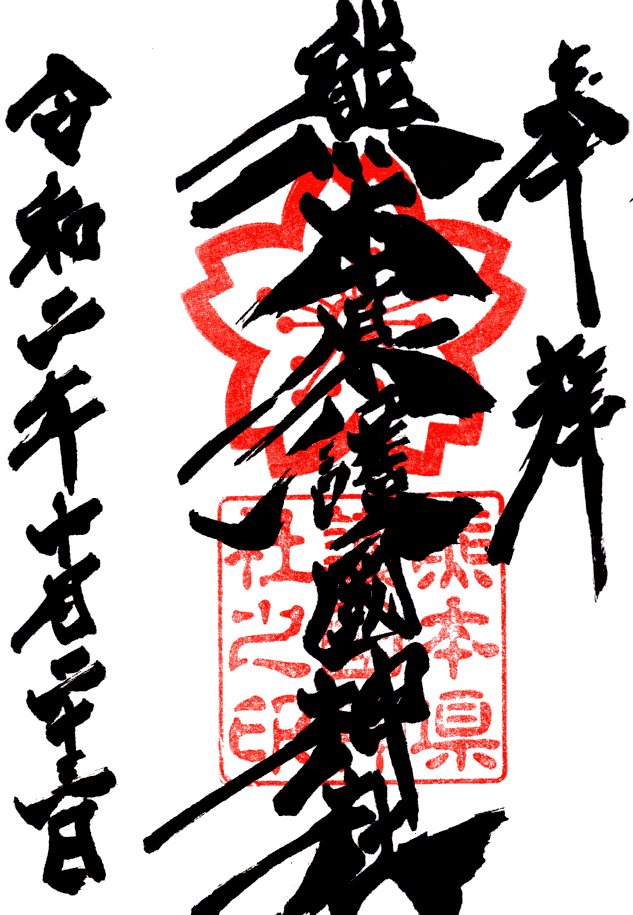 奉拝
熊本県護國神社
熊本県護國神社之印
令和二年十月二十三日